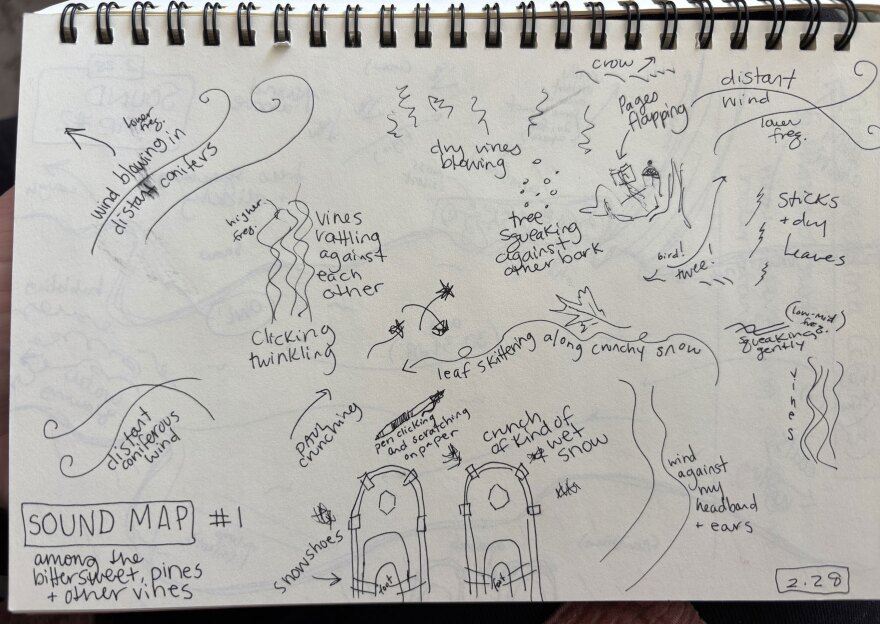 crow
lower
freq.
wind blowing in
distant conifers
dry vines
blowing
Pages
flapping
distant
wind
lower
freq.
higher
freq.
vines
rattling
against
each
other
Clicking
twinkling
tree
squeaking
against
other bark
bird!
twee!
sticks
+ dry
Leaves
leaf skittering along crunchy snow
(low-mid
freq.)
squeaking
gently
vines
distant
coniferous
wind
PAUL
crunching
pen clicking
and scratching
on paper
crunch
of kind of
wet
snow
wind
against
my
headband
+ ears
snowshoes
foot
foot
SOUND MAP #1
among the
bittersweet, pines
+ other vines
2.28